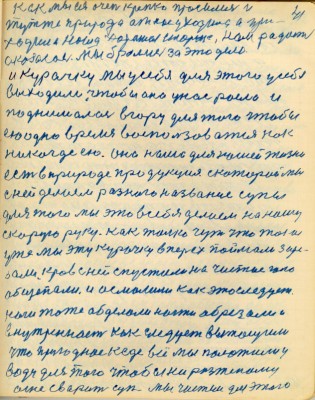 Как мы им очен крепко просимся и
тут же природа
родила Нам радость
сказала. Мы брались за это дело
и Курочку мы у себя для этого у себя
выходили, чтобы она у нас росла и
поднималася вгору для того чтобы
ею одно время воспользоватся как
никогда ею. она наша для нашей жизни
есть в природе продукция с которой мы
с ней делаем разного названия супы
для того мы это в себя делаем на нашу
скорую руку. как только чуть что то и
уже мы эту курочку вперёх поймали зар-
езали, кровь с ней спустили на чистое
общепали. и осмолили как это следует
ноги тоже обделали ногти обрезали а
внутренность как следует вытащили
что пригодное к еде всё мы положили у
воду для того чтобы
она сварит суп. мы чистим для этого